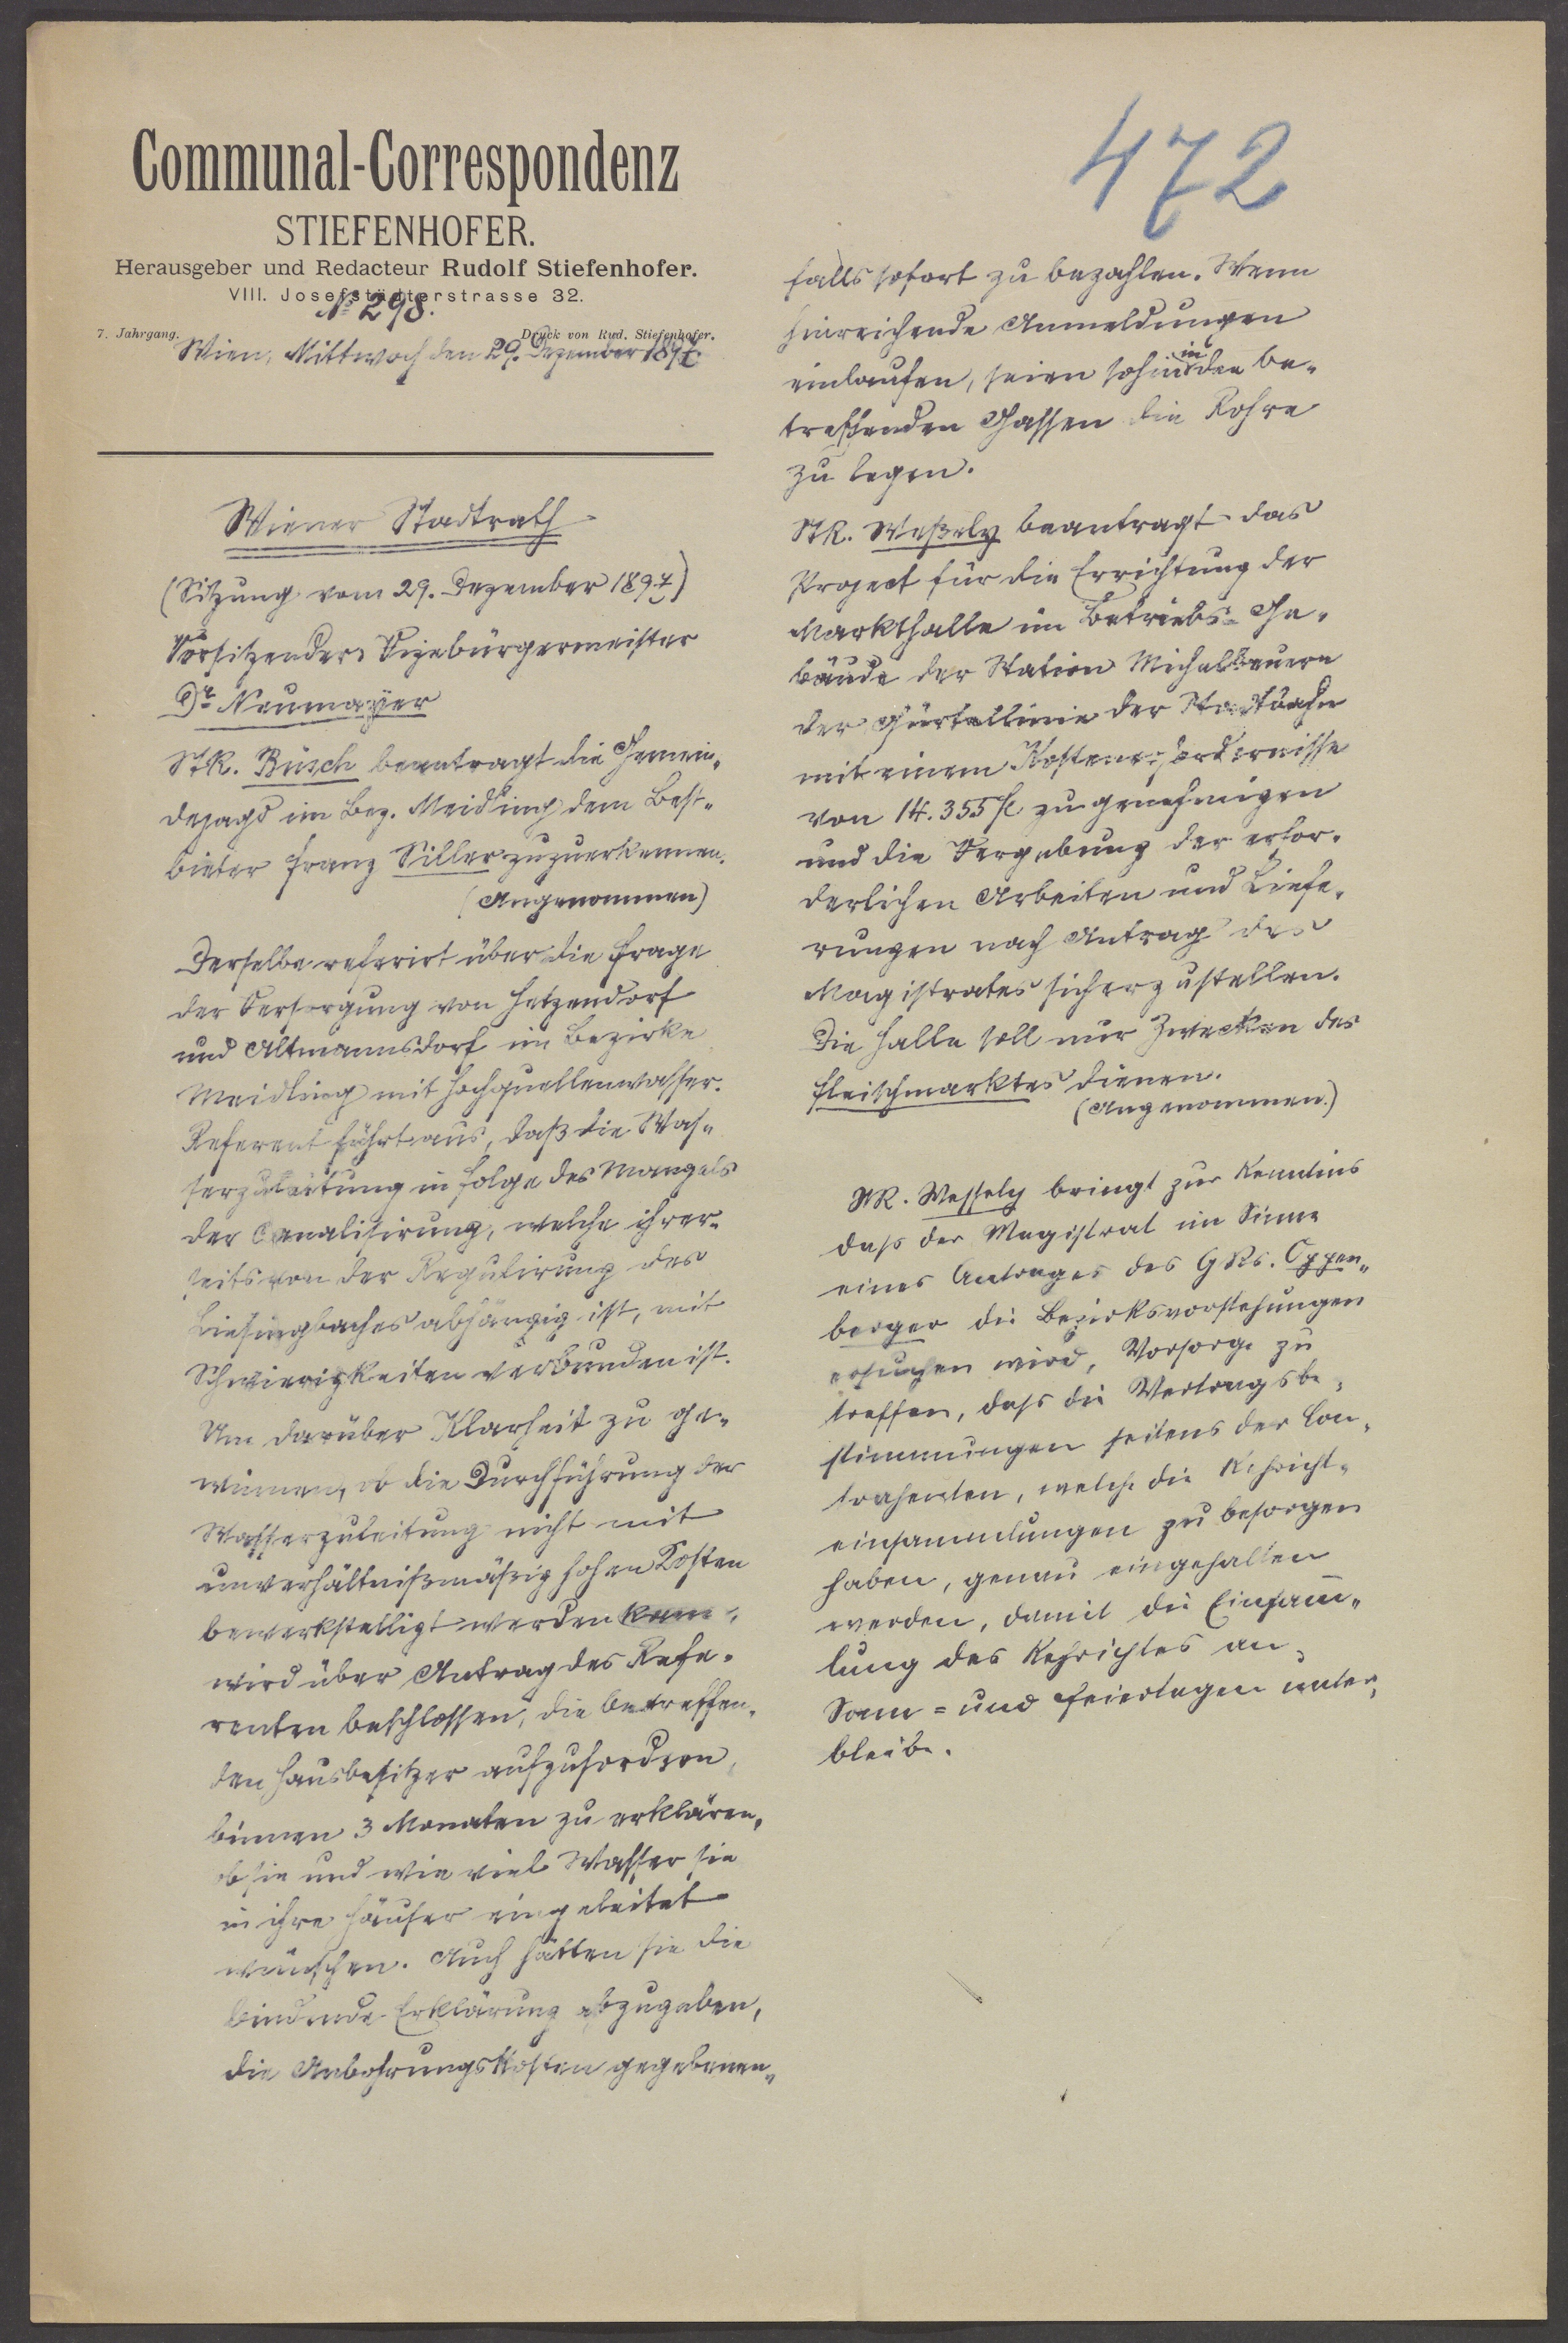 Communal-Correspondenz
STIEFENHOFER.
Herausgeber und Redacteur Rudolf Stiefenhofer.
VIII. Josefstädterstrasse 32.
№ 298.
7. Jahrgang. Druck von Rud. Stiefenhofer.
Wien, Mittwoch den 29. Dezember 1897.
Wiener Stadtrath
(Sitzung vom 29. Dezember 1897)
Vorsitzender Vizebürgermeister
Dr Neumayer
StR. Büsch beantragt die Gemein„
dejagd im Bez. Meidling dem Best„
bieter Franz Siller zuzuerkennen.
(Angenommen)
Derselbe referirt über die Frage
der Versorgung von Hetzendorf
und Altmannsdorf im Bezirke
Meidling mit Hochquellenwasser.
Referent führt aus, daß die Was„
serzuleitung in Folge des Mangels
der Canalisirung, welche ihrer„
seits von der Regulirung des
Liesingbaches abhängig ist, mit
Schwierigkeiten verbunden ist.
Um darüber Klarheit zu ge„
winnen, ob die Durchführung der
Wasserzuleitung nicht mit
unverhältnißmäßig hohen Kosten
bewerkstelligt werden kann,
wird über Antrag des Refe„
renten beschlossen, die betreffen„
den Hausbesitzer aufzufordern,
binnen 3 Monaten zu erklären,
ob sie und wie viel Wasser sie
in ihre Häuser eingeleitet
wünschen. Auch hätten sie die
bindende Erklärung abzugeben,
die Anbohrungskosten gegebenen„
472
falls sofort zu bezahlen. Wenn
hinreichende Anmeldungen
einlaufen, seien sohin in den be„
treffenden Gassen die Rohre
zu legen.
StR. Weßely beantragt das
Project für die Errichtung der
Markthalle im Betriebs-Ge„
bäude der Station Michelbeuern
der Gürtellinie der Stadtbahn
mit einem Kostenerfordernisse
von 14.355 fl zu genehmigen
und die Vergebung der erfor„
derlichen Arbeiten und Liefe„
rungen nach Antrag des
Magistrates sicherzustellen.
Die Halle soll nur Zwecken des
Fleischmarktes dienen.
(Angenommen.)
StR. Wessely bringt zur Kenntnis
dass der Magistrat im Sinne
eines Antrages des GRs. Oppen„
berger die Bezirksvorstehungen
ersuchen wird, Vorsorge zu
treffen, dass die Vertragsbe„
stimmungen seitens der Con„
trahenten, welche die Kehricht„
einsammlungen zu besorgen
haben, genau eingehalten
werden, damit die Einsam̄„
lung des Kehrichtes an
Sonn= und Feiertagen unter„
bleibe.